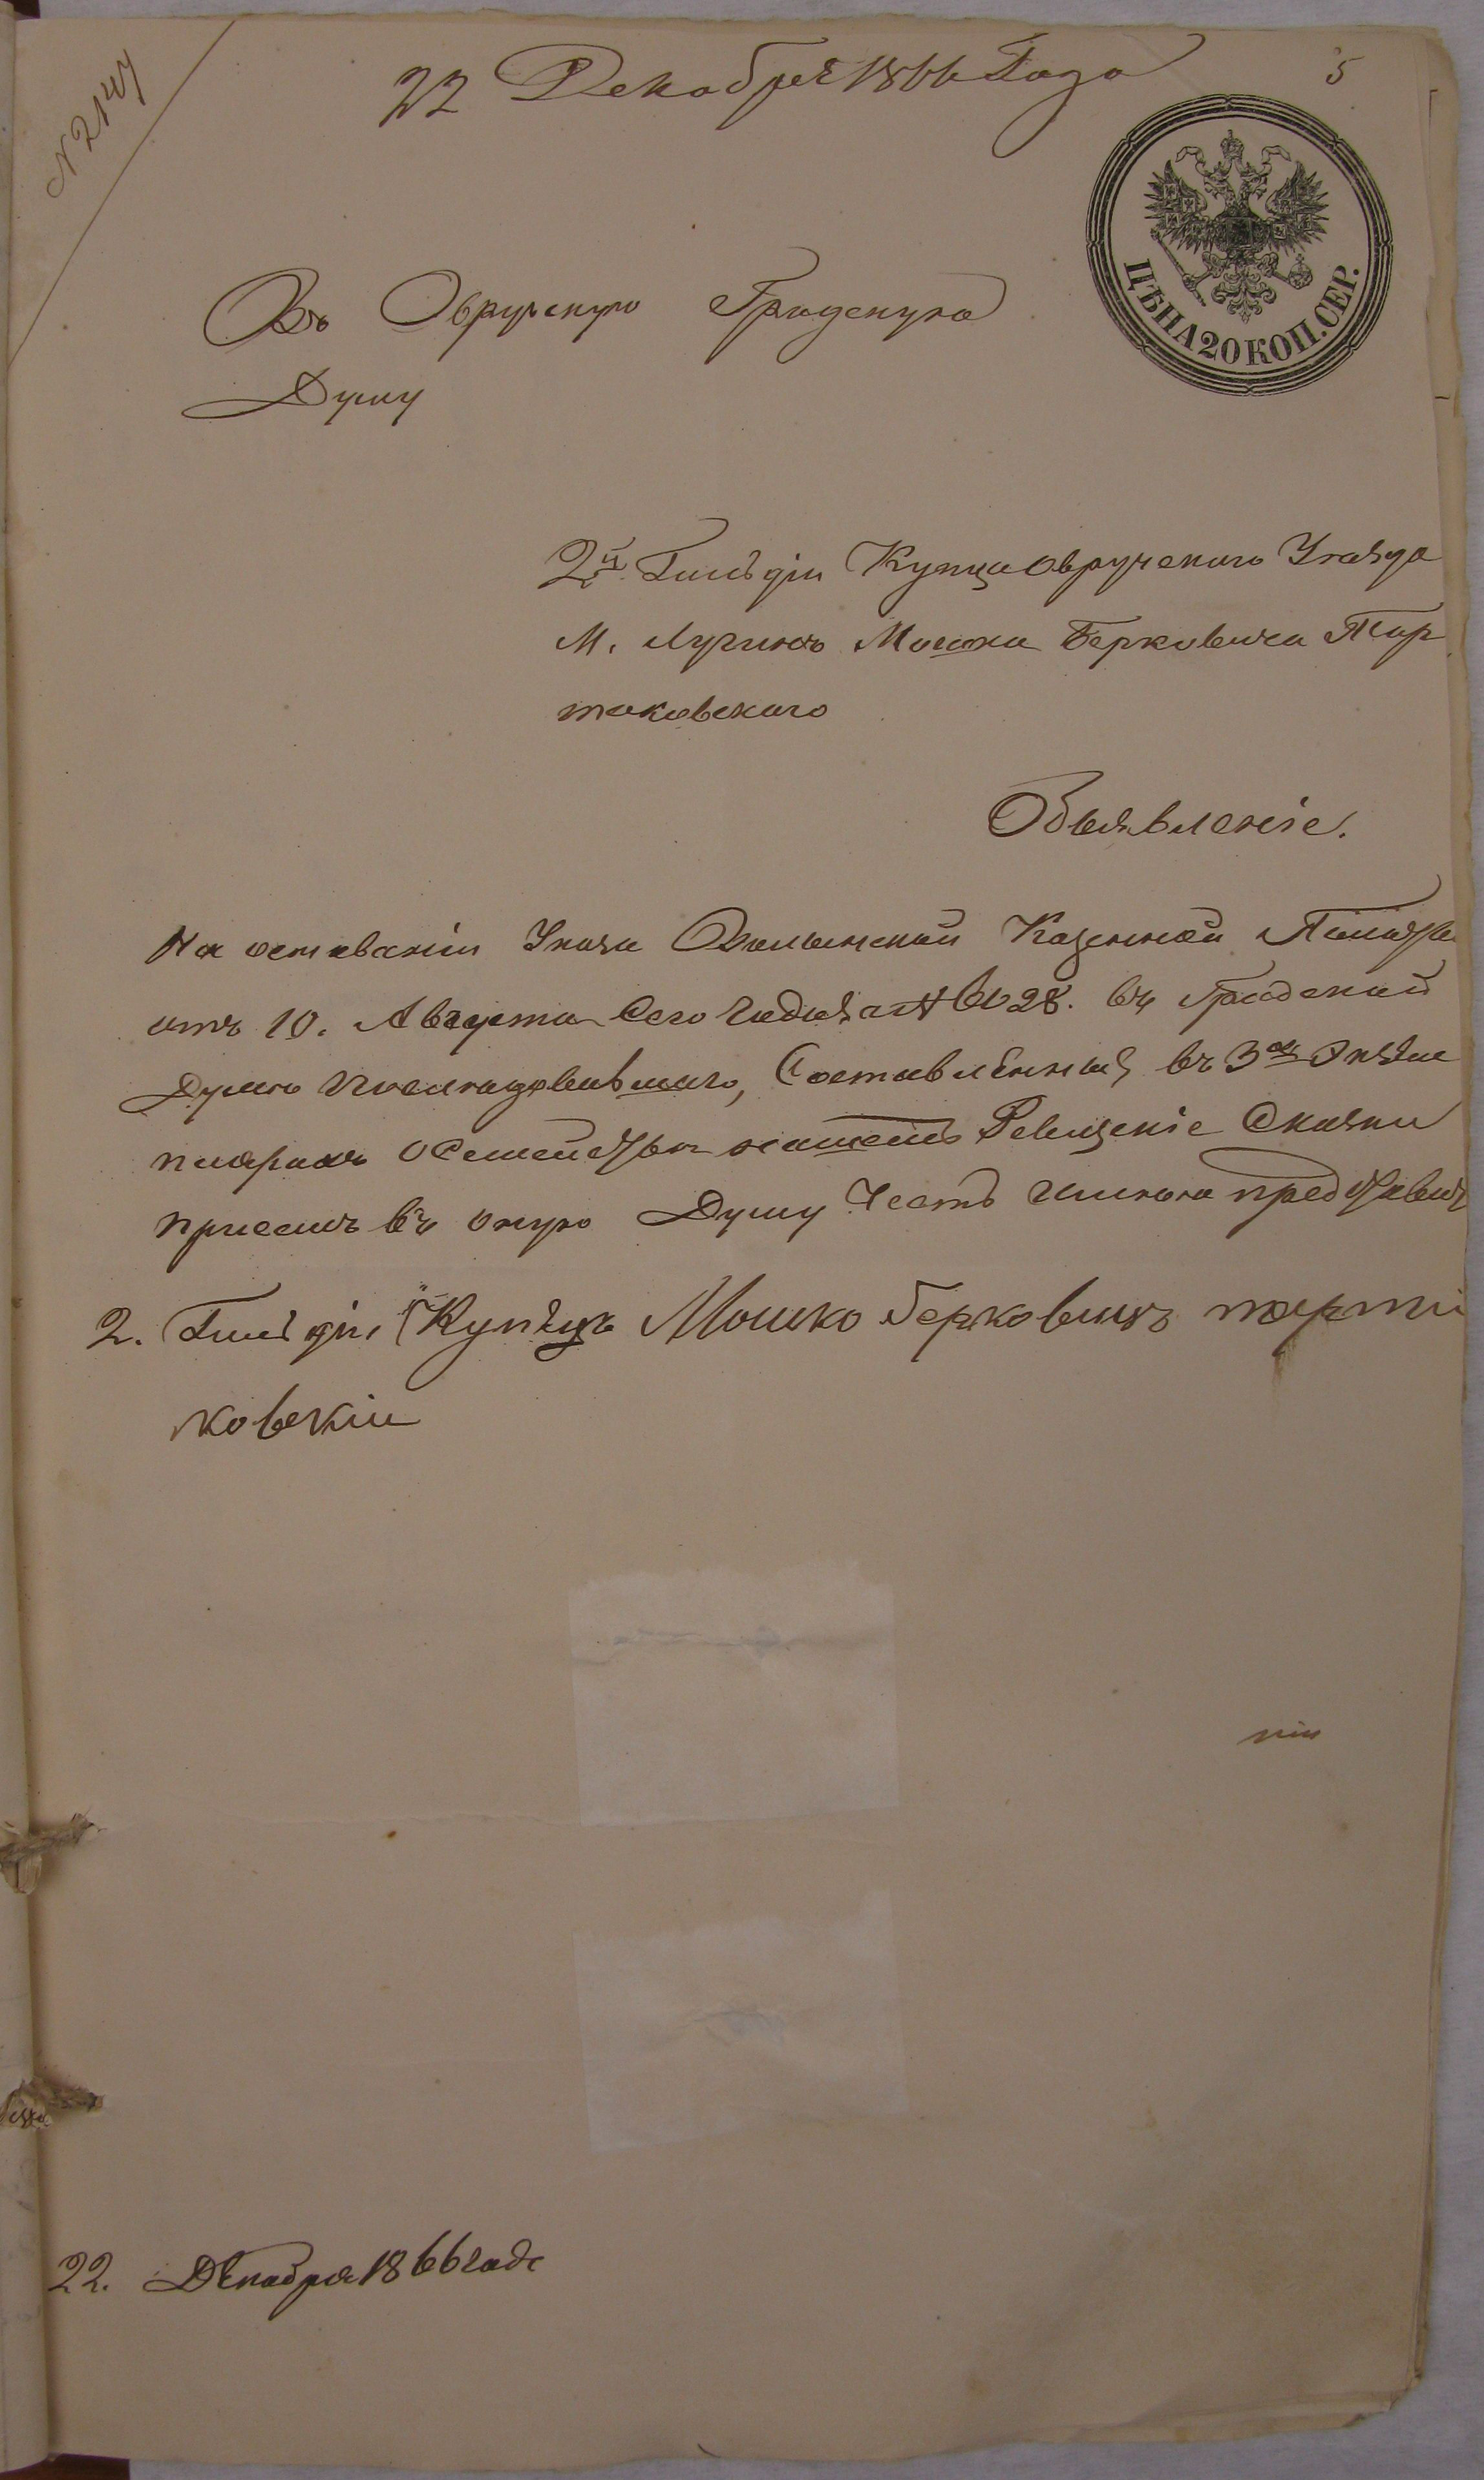 N 2147
22 Декабря 1866 Года
5
ЦѢНА 20 КОП. СЕР.
Въ Овручскую Градскую
Думу
2й Гильдіи Купца Овручскаго Уѣзда
М. Лугинъ Мошка Берковича Тар
таковскаго
Объявленіе.
На основаніи Указа Волынской Казенной Палаты
отъ 10. Августа сего года за N 6128. въ Градской
Думы последовавшаго, Составленный въ 3хъ Экзем
плярахъ о Семействѣ нашемъ Ревизскіе Сказки
при семъ въ оную Думу Честь имѣю представить
2. Гильдіи Купецъ Мошко Берковичъ тарта
ковскіи
22. Декабря 1866 года